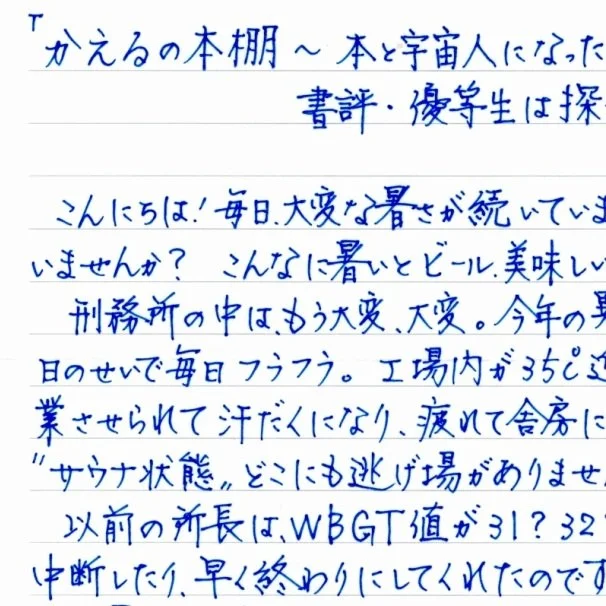 「かえるの本棚 〜 本と宇宙人になった
書評・優等生は探
こんにちは！毎日、大変な暑さが続いていま
いませんか？ こんなに暑いとビール、美味しい
刑務所の中は、もう大変、大変。今年の異
日のせいで毎日フラフラ。工場内が35℃近
業させられて汗だくになり、疲れて舎房に
"サウナ状態„どこにも逃げ場がありませ
以前の所長は、WBGT値が31？32？
中断したり、早く終わりにしてくれたのです